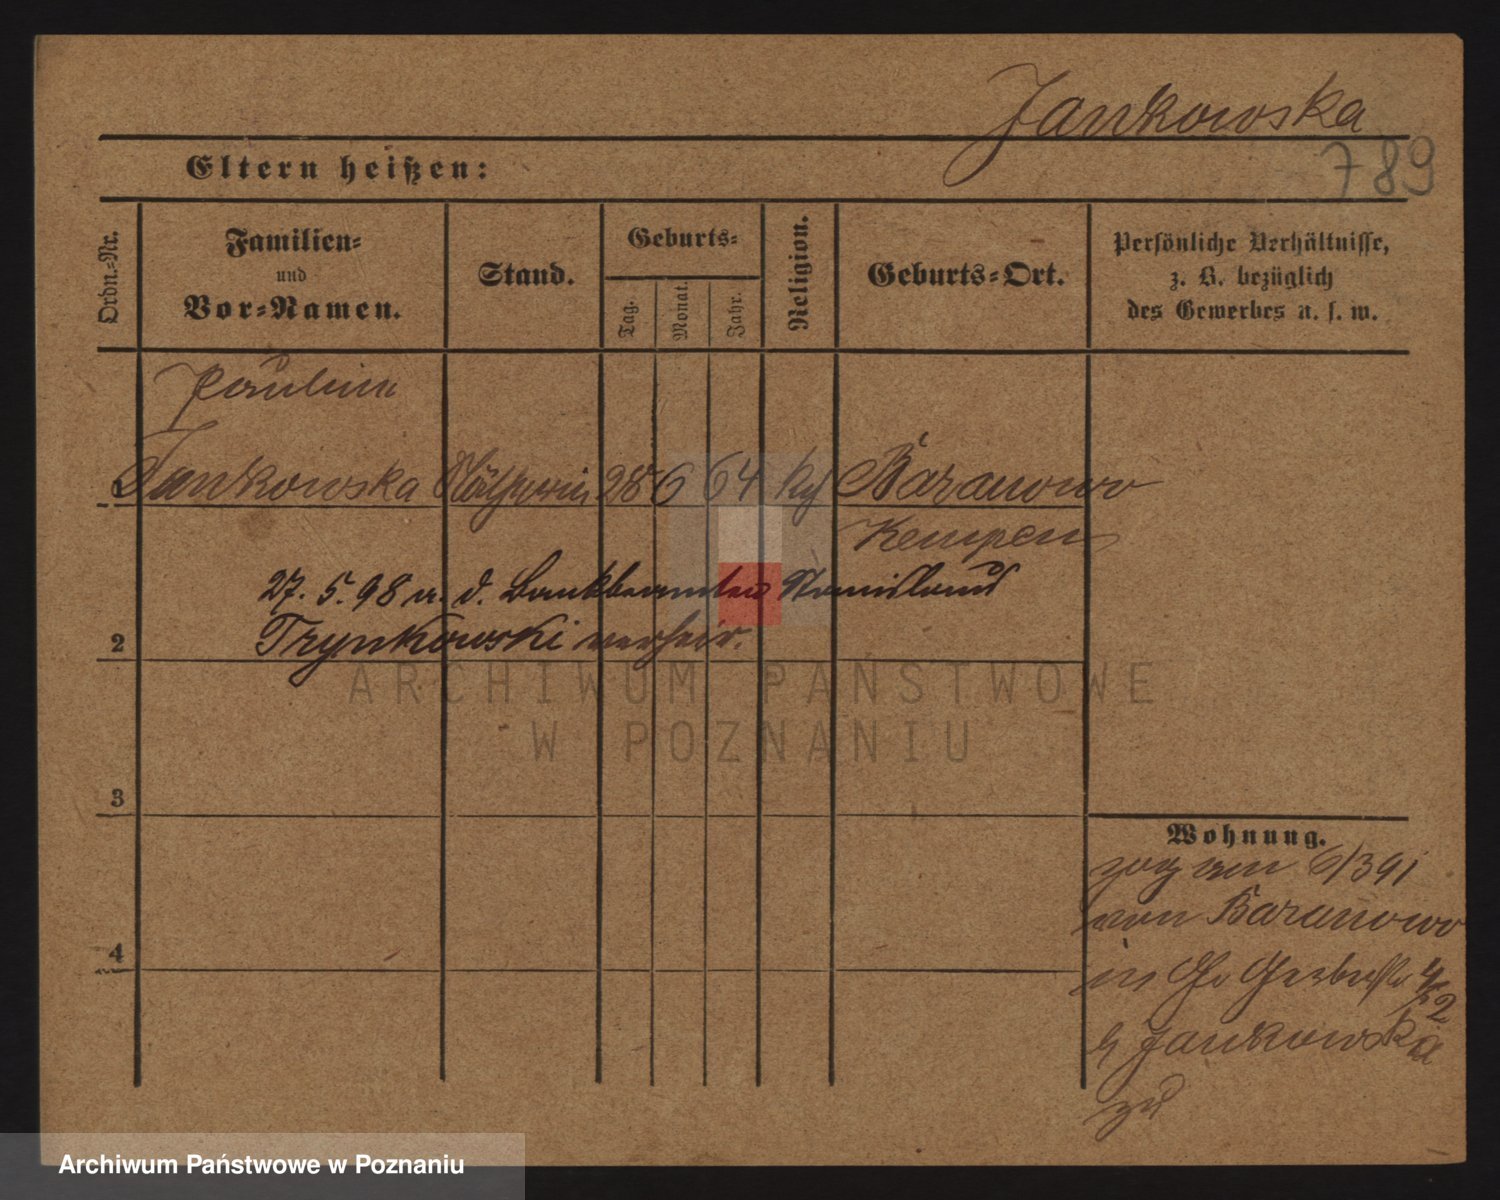 Jankowska
789
Eltern heißen:
Ordn.-Nr.
Familien-
und
Vor-Namen.
Stand.
Geburts-
Tag.
Monat.
Jahr.
Religion.
Geburts-Ort.
Persönliche Verhältnisse,
z. B. bezüglich
des Gewerbes u. s. w.
Paulina
1 Jankowska Näherin 28 6 64 Baranowo
Kempen
27. 5. 98 m. d. Bankbeamten Stanislaus
2 Trynkowski verheir.
3
4
Wohnung.
zog am 6/3 91
von Baranowo
in Gr Gerberstr 4/52
b Jankowska
zu
ARCHIWUM PAŃSTWOWE
W POZNANIU
Archiwum Państwowe w Poznaniu